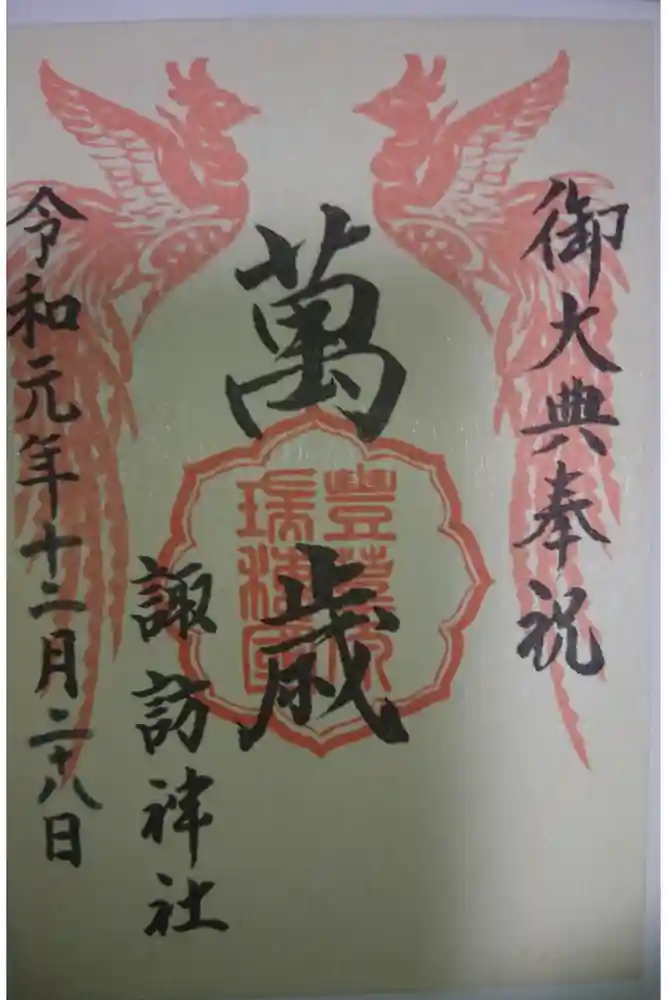 御大典奉祝
萬歳
豊葦原
瑞穂國
諏訪神社
令和元年十二月二十八日